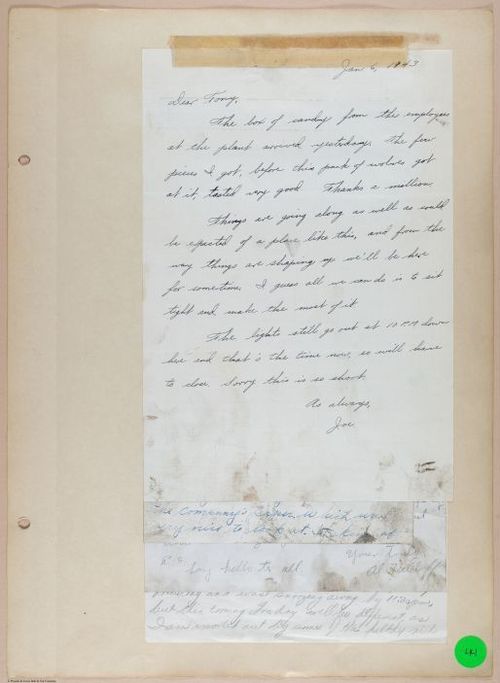 Jan 6, 1943
Dear Tony,
The box of candy from the employees
at the plant arrived yesterday. The few
pieces I got, before this pack of wolves got
at it, tasted very good. Thanks a million.
Things are going along as well as could
be expected of a place like this, and from the
way things are shaping up we'll be here
for sometime. I guess all we can do is to sit
tight and make the most of it.
The lights still go out at 10 P.M. down
here and that is the time now, so will have
to close. Sorry this is so short.
As always,
Joe
the Company's
very nice to
Yours truly,
Say hello to all.
Al
away by 11:30 am,
but this
I am
441